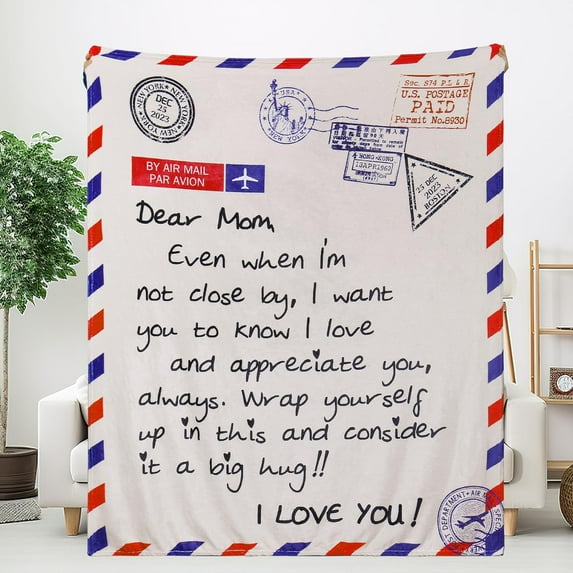 NEW YORK • NEW YORK • NEW YORK
DEC
25
2023
U.S.A
NEW YORK
Sec. 874 P.L & R
U.S. POSTAGE
PAID
Permit No.8930
HONG KONG
13APR1962
25 DEC
2023
BOSTON
BY AIR MAIL
PAR AVION
Dear Mom,
Even when i'm
not close by, I want
you to know I love
and appreciate you,
always. Wrap yourself
up in this and consider
it a big hug!!
I LOVE YOU!
DEPARTMENT • AIR MAIL